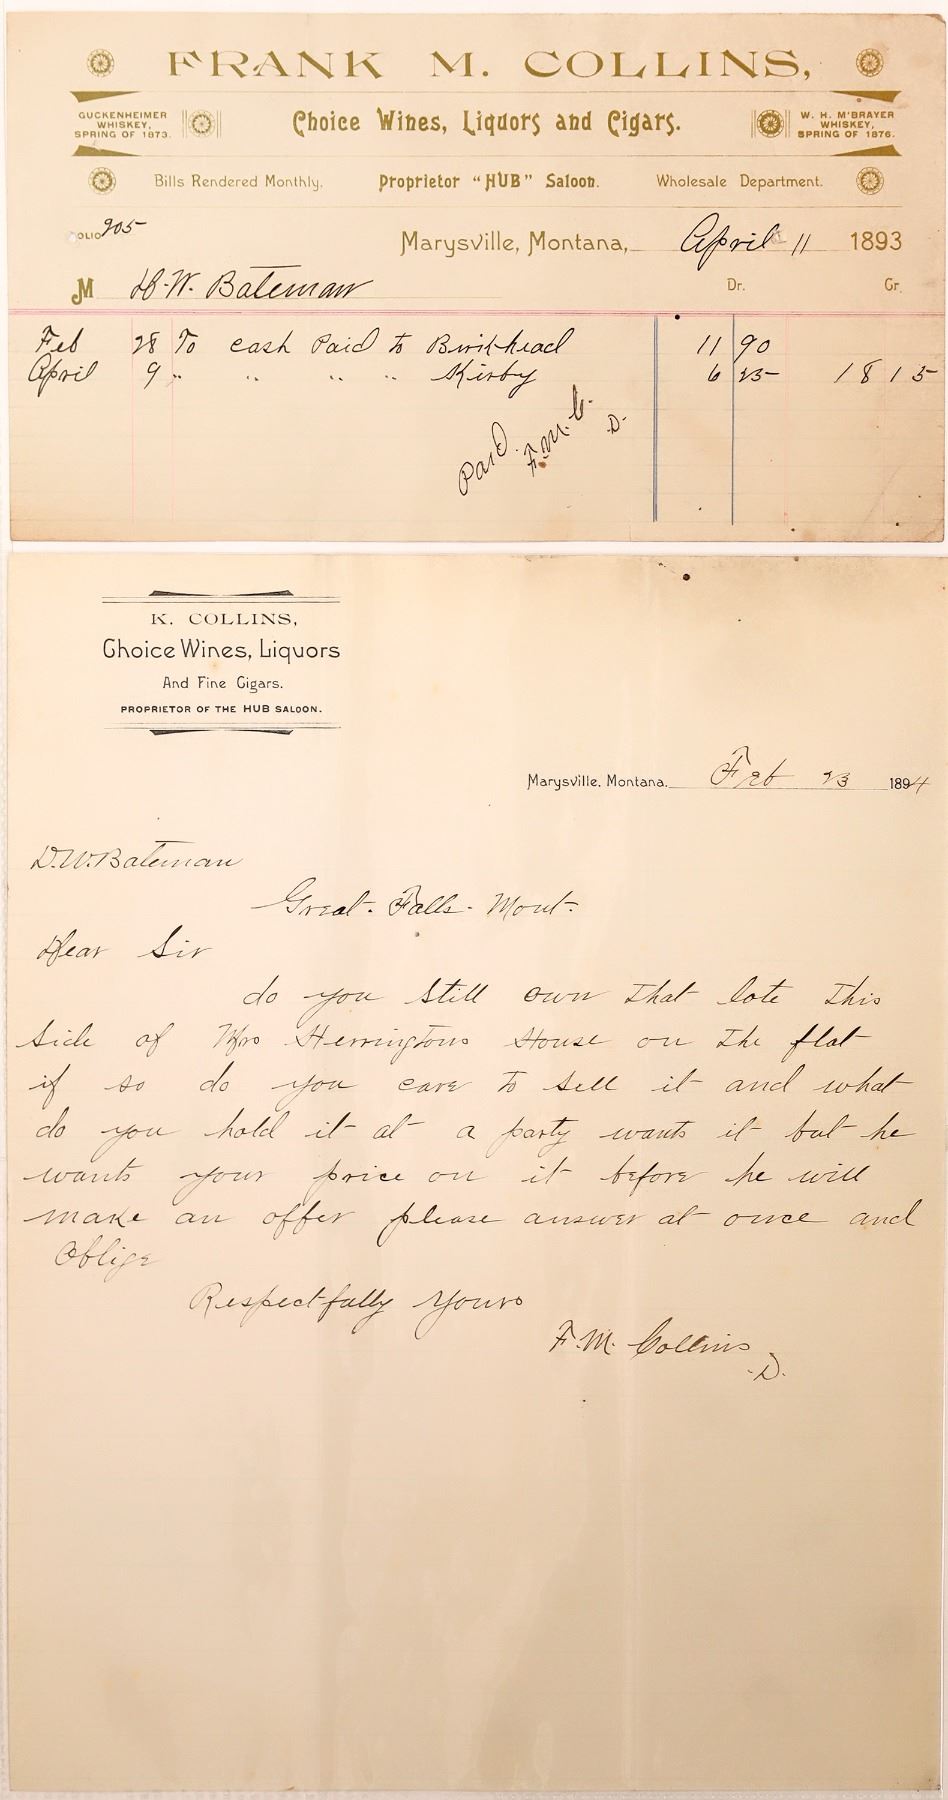 FRANK M. COLLINS,
GUCKENHEIMER WHISKEY, SPRING OF 1873.
Choice Wines, Liquors and Cigars.
W. H. M'BRAYER WHISKEY, SPRING OF 1876.
Bills Rendered Monthly. Proprietor "HUB" Saloon. Wholesale Department.
OLIO 205
Marysville, Montana, April 11 1893
M D. W. Bateman Dr. Cr.
Feb 28 To cash Paid to Birkhead 11 90
April 9 " " " " Kirby 6 25 18 15
Paid. F. M. C. D.
K. COLLINS,
Choice Wines, Liquors
And Fine Cigars.
PROPRIETOR OF THE HUB SALOON.
Marysville, Montana. Feb 23 1894
D. W. Bateman
Great. Falls. Mont.
Dear Sir
do you still own that lote this
side of Mrs Herringtons House on the flat
if so do you care to sell it and what
do you hold it at a party wants it but he
wants your price on it before he will
make an offer please answer at once and
Oblige
Respectfully Yours
F. M. Collins
D.